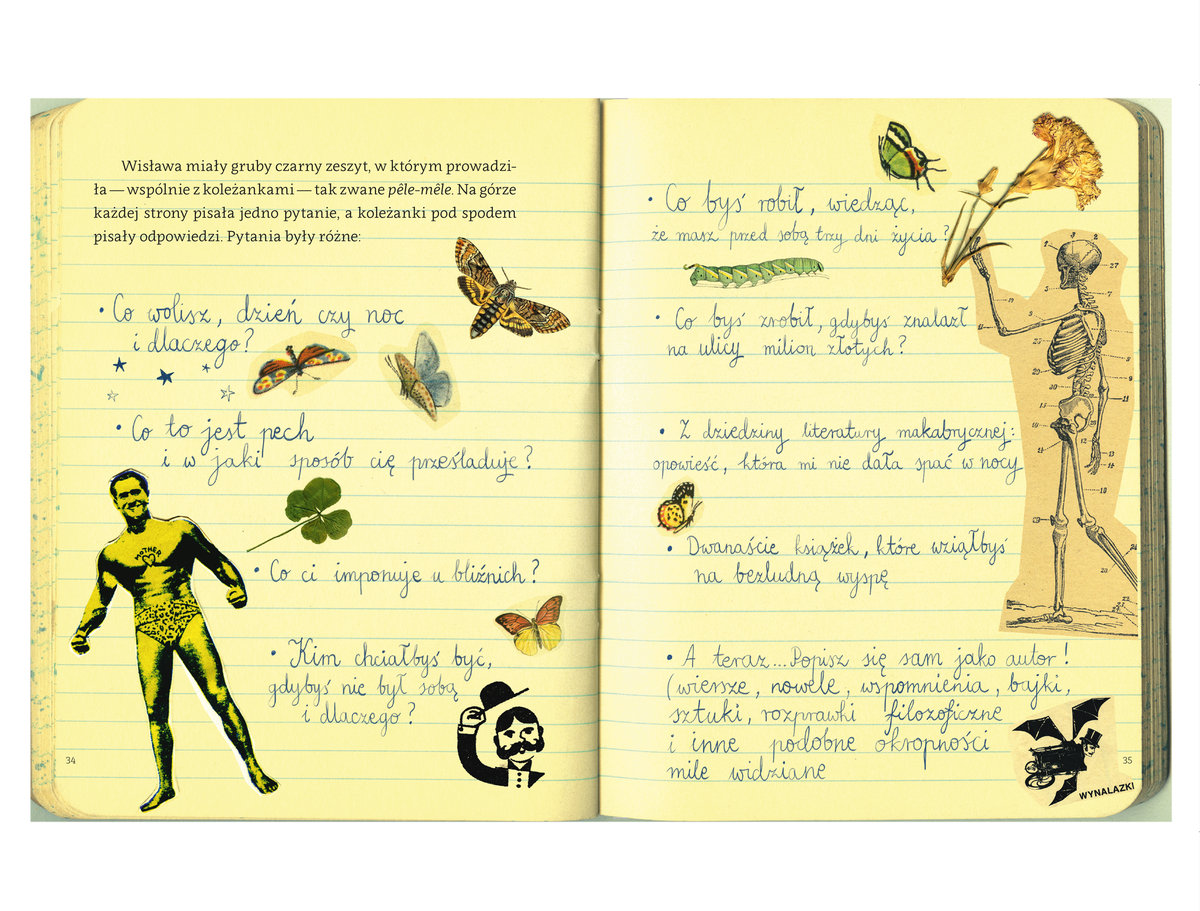 Wisława miały gruby czarny zeszyt, w którym prowadzi-
ła — wspólnie z koleżankami — tak zwane pêle-mêle. Na górze
każdej strony pisała jedno pytanie, a koleżanki pod spodem
pisały odpowiedzi. Pytania były różne:
• Co wolisz, dzień czy noc
i dlaczego?
• Co to jest pech
i w jaki sposób cię prześladuje?
MOTHER
• Co ci imponuje u bliźnich?
• Kim chciałbyś być,
gdybyś nie był sobą
i dlaczego?
34
• Co byś robił, wiedząc,
że masz przed sobą trzy dni życia?
• Co byś zrobił, gdybyś znalazł
na ulicy milion złotych?
• Z dziedziny literatury makabrycznej:
opowieść, która mi nie dała spać w nocy
• Dwanaście książek, które wziąłbyś
na bezludną wyspę
• A teraz... Popisz się sam jako autor!
(wiersze, nowele, wspomnienia, bajki,
sztuki, rozprawki filozoficzne
i inne podobne okropności
mile widziane
35
WYNALAZKI